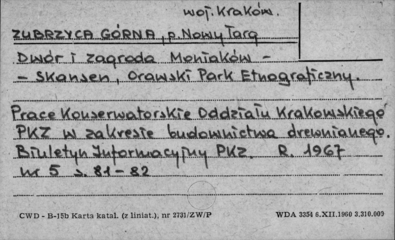 woj. Kraków.
ZUBRZYCA GÓRNA, p. Nowy Targ
Dwór i zagroda Moniaków -
- Skansen, Orawski Park Etnograficzny.
Prace Konserwatorskie Oddziału Krakowskiego
PKZ w zakresie budownictwa drewnianego.
Biuletyn Informacyjny PKZ. R. 1967
nr 5 s. 81-82
CWD - B-15b Karta katal. (z liniat.), nr 2731/ZW/P WDA 3354 6.XII.1960 3,210.000